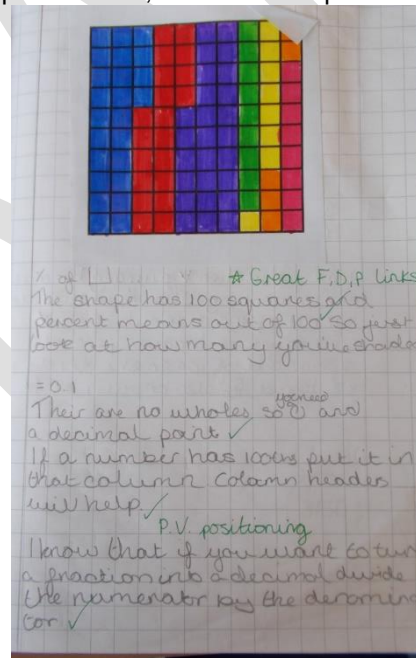 % of
☆ Great F.D.P links
The shape has 100 squares and
percent means out of 100 so just
look at how many you've shaded
= 0.1
you need
Their are no wholes so 0 and
a decimal point ✓
If a number has 100ths put it in
that column Colamn headers
will help ✓
P.V. positioning
I know that if you want to turn
a fraction into a decimal divide
the numenator by the denomina
tor ✓